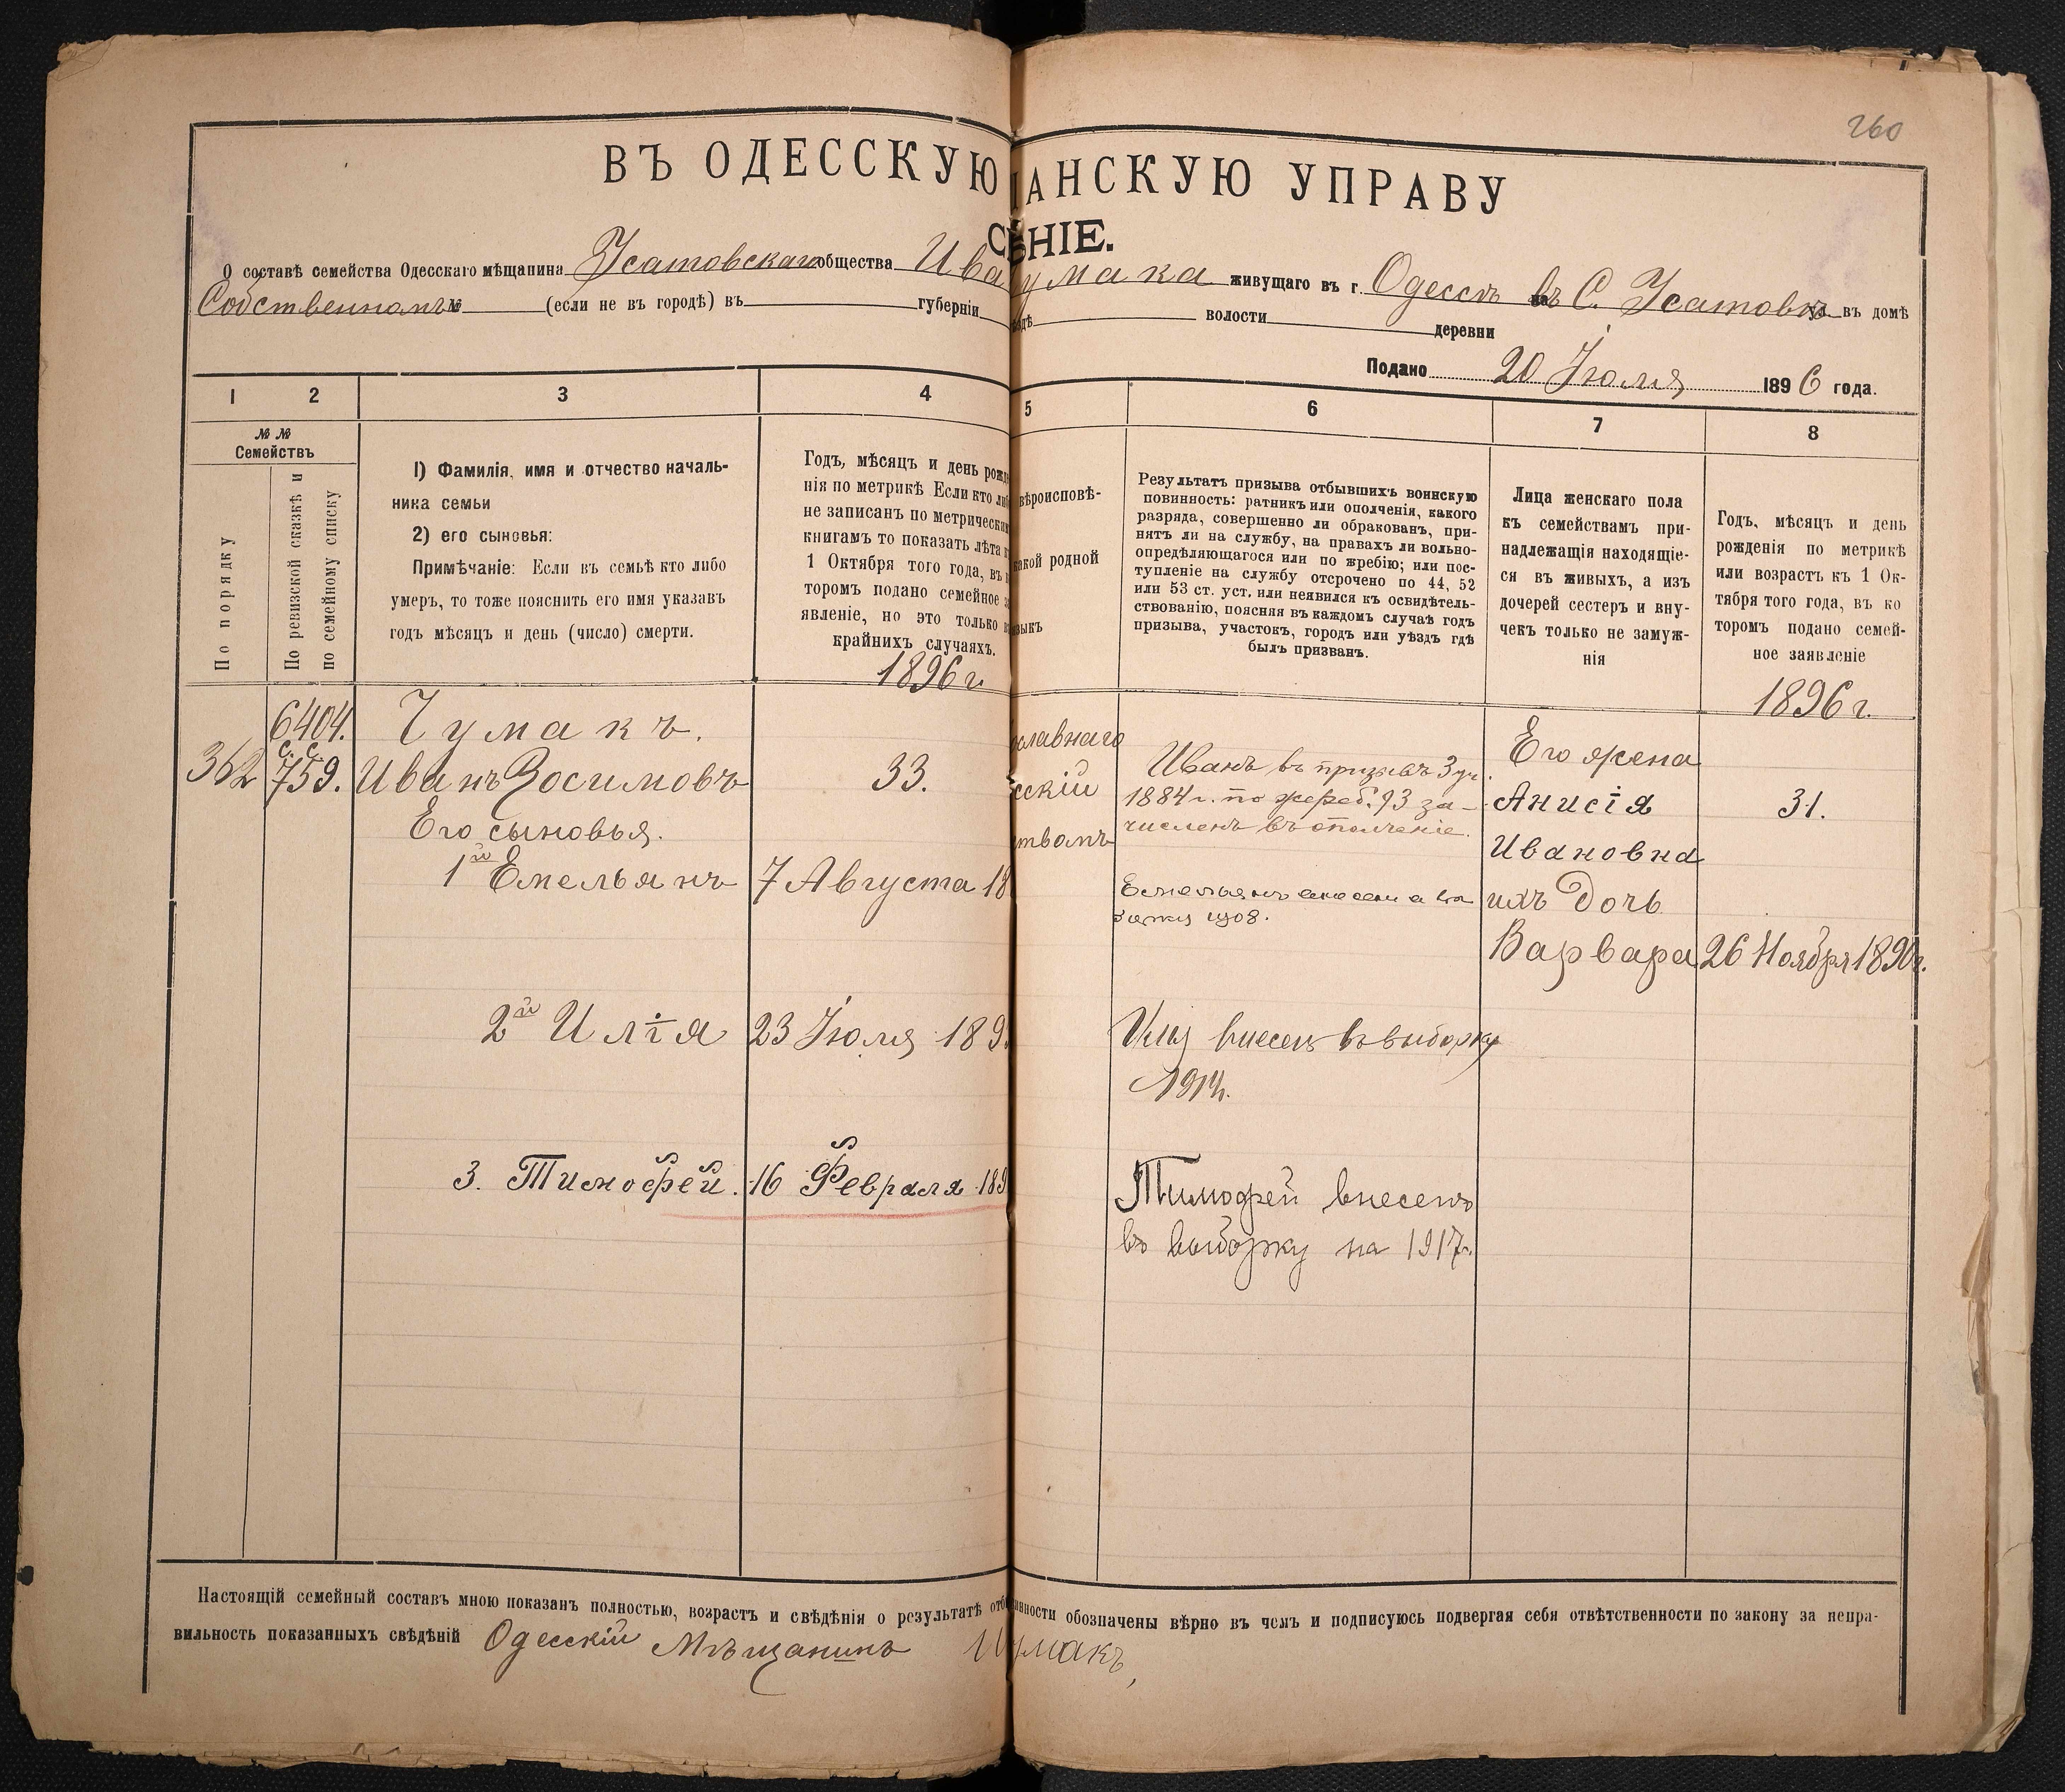 260
ВЪ ОДЕССКУЮ АНСКУЮ УПРАВУ
ЕНІЕ.
О составѣ семейства Одесскаго мѣщанина Усатовскаго общества Ива умака живущаго въ г. Одессѣ въ С. Усатовѣ ул. въ домѣ
Собственномъ № (если не въ городѣ) въ губерніи ѣздѣ волости деревни
Подано 20 Іюля 1896 года.
1 2 3 4 5 6 7 8
№ №
Семействъ
По порядку
По ревизской сказкѣ и
по семейному списку
1) Фамилія, имя и отчество началь-
ника семьи
2) его сыновья:
Примѣчаніе: Если въ семьѣ кто либо
умеръ, то тоже пояснить его имя указавъ
годъ мѣсяцъ и день (число) смерти.
Годъ, мѣсяцъ и день рожд
нія по метрикѣ Если кто ли
не записанъ по метрическим
книгамъ то показать лѣта
1 Октября того года, въ
торомъ подано семейное
явленіе, но это только
крайнихъ случаяхъ.
1896 г.
вѣроисповѣ-
акой родной
зыкъ
Результатъ призыва отбывшихъ воинскую
повинность: ратникъ или ополченія, какого
разряда, совершенно ли обракованъ, при-
нятъ ли на службу, на правахъ ли вольно-
опредѣляющагося или по жребію; или пос-
тупленіе на службу отсрочено по 44, 52
или 53 ст. уст. или неявился къ освидѣтель-
ствованію, поясняя въ каждомъ случаѣ годъ
призыва, участокъ, городъ или уѣздъ гдѣ
былъ призванъ.
Лица женскаго пола
къ семействамъ при-
надлежащія находящіе-
ся въ живыхъ, а изъ
дочерей сестеръ и вну-
чекъ только не замуж-
нія
Годъ, мѣсяцъ и день
рожденія по метрикѣ
или возрастъ къ 1 Ок-
тября того года, въ ко
торомъ подано семей-
ное заявленіе
1896 г.
6404. Чумакъ. славнаго Его жена
362 с. с. 759. Иванъ Зосимовъ 33. сскій Иванъ въ призывъ 3 уч. Анисія 31.
1884 г. по жереб. 93 за-
численъ въ ополченіе.
Его сыновья. твомъ Ивановна
1й Емельянъ 7 Августа 18 Емельянъ внесенъ ихъ Дочь
1908.
Варвара 26 Ноября 1890 г.
2й Илія 23 Іюля 189 Илья внесенъ въ выборку
1914 г.
3. Тимофей. 16 Февраля 189 Тимофей внесенъ
въ выборку на 1917 г.
Настоящій семейный составъ мною показанъ полностью, возрастъ и свѣдѣнія о результатѣ отб инности обозначены вѣрно въ чемъ и подписуюсь подвергая себя отвѣтственности по закону за непра-
вильность показанныхъ свѣдѣній Одесскій Мѣщанинъ Чумакъ,